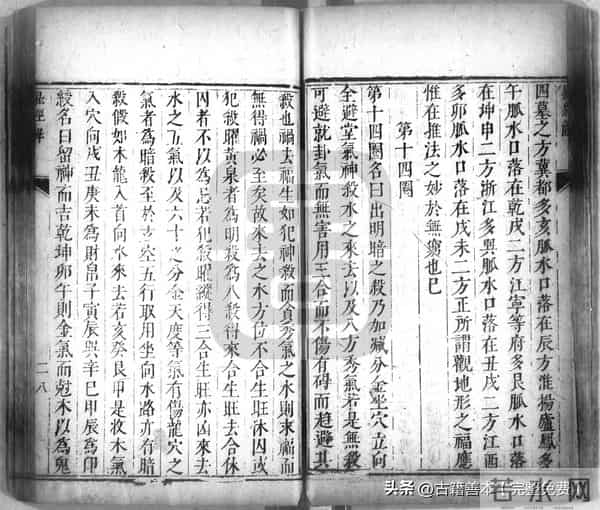 四墓之方冀都多亥脈水口落在辰方淮揚廬鳳多
午脈水口落在乾戌二方江寧等府多艮脈水口落
在坤申二方浙江多巽脈水口落在丑戌二方江西
多卯脈水口落在戌未二方正所謂觀地形之福應
惟在推法之妙於無窮也已
第十四圈
第十四圈名曰出明暗之殺乃加減分金坐穴立向
全避堂氣神殺水之來去以及八方秀氣若是無殺
可避就卦氣而無害用三合而不傷有碍而趨避其
殺也禍去福生如犯神殺而貪秀氣之水則求福而
無得禍必至矣故來去之水方位不合生旺休囚或
犯殺曜黃泉者為明殺為八殺得來合生旺去合休
囚者不以為忌若犯殺曜縱得三合生旺亦凶來去
水之五氣以及六十之分金天度等氣有傷龍穴之
氣者為暗殺至於玄空五行取用坐向水路亦有暗
殺假如木龍入首向水來去若亥癸艮甲是收木氣
入穴向戌丑庚未為財帛子寅辰巽辛巳申辰為印
綬名曰留神而吉乾坤卯午則金氣而尅木以為鬼
一八
头条@古籍善本（完整免费）